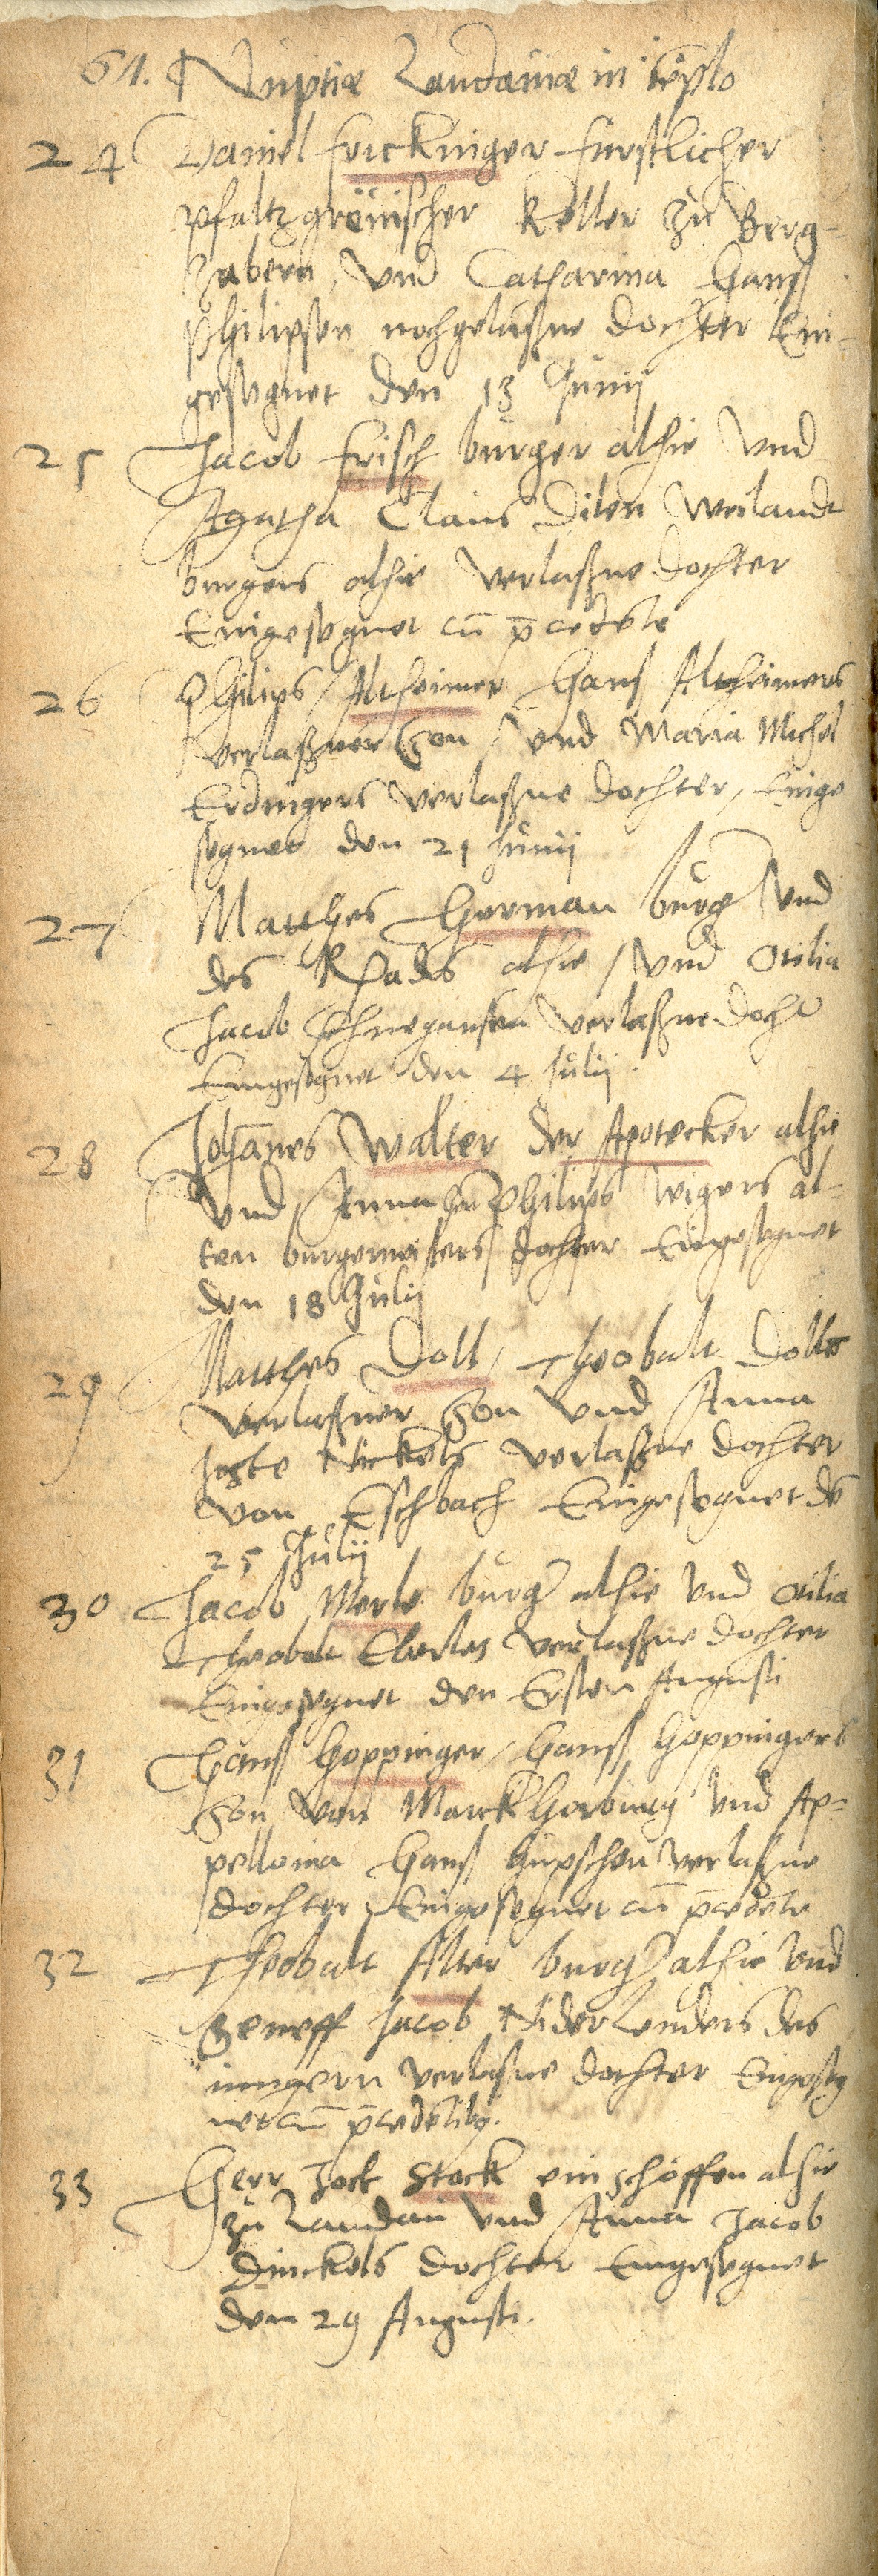 64. Nuptiæ Landauiæ in teplo
24 Daniel Frickinger Fürstlicher
Pfaltzgrëuischer Keller zu Berg-
zabern, Vnd Catharina Hanß
Philipsen nochgelaßne dochter Ein-
gesegnet den 13 Junij
25 Jacob Frisch burger alhie Vnd
Agatha Claus Dilen Weilandt
burgers alhie Verlaßne Dochter
Eingesegnet cū p̄cedēte
26 Philips Altheimer Hans Altheimers
verlaßner Son / vnd Maria Michel
Erdingers verlaßne dochter, Einge
segnet den 21 Junij
27 Matthes German burg Vnd
des Rhads alhie / Vnd Otilia
Jacob Schnegansen Verlaßne Docht
Eingesegnet den 4 Julij.
28 Johānes Walter der Apotecker alhie
Vnd Anna Philips Wigers al-
ten burgemeisters dochter Eingesegnet
den 18 Julij
29 Matthes Doll, Theobalt Dolls
verlaßner Son Vnd Anna
Joste Nickels Verlaßne dochter
von Eschbach Eingesegnet dē
25 Julij
30 Jacob Merle burg alhie Vnd Otilia
Theobalt Eberles Verlaßne dochter
Eingesegnet den Ersten Augusti
31 Hanß Goppinger / Hanß Goppingers
Son von Marck Horburg Vnd Ap-
pellonia Hanß Hüpschen Verlaßne
dochter Eingesegnet cū p̄cedēte
32 Theobalt Alter burg alhie Vnd
Geneff Jacob Niderlenders des
iungern Verlaßne dochter Eingeseg
net cū p̄cedētibꝫ.
33 Herr Jost Stock ein schöffen alhie
zu Landau Vnd Anna Jacob
Dinckels dochter Eingesegnet
den 29 Augusti.